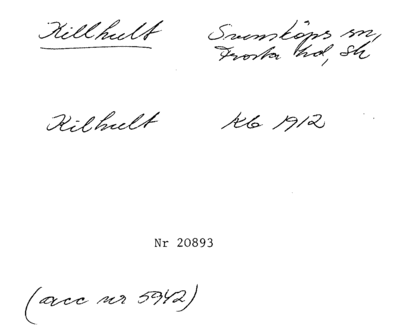 Killhult Svensköps sn,
Frosta hd, Sk
Kilhult Kb 1912
Nr 20893
(acc nr 5942)